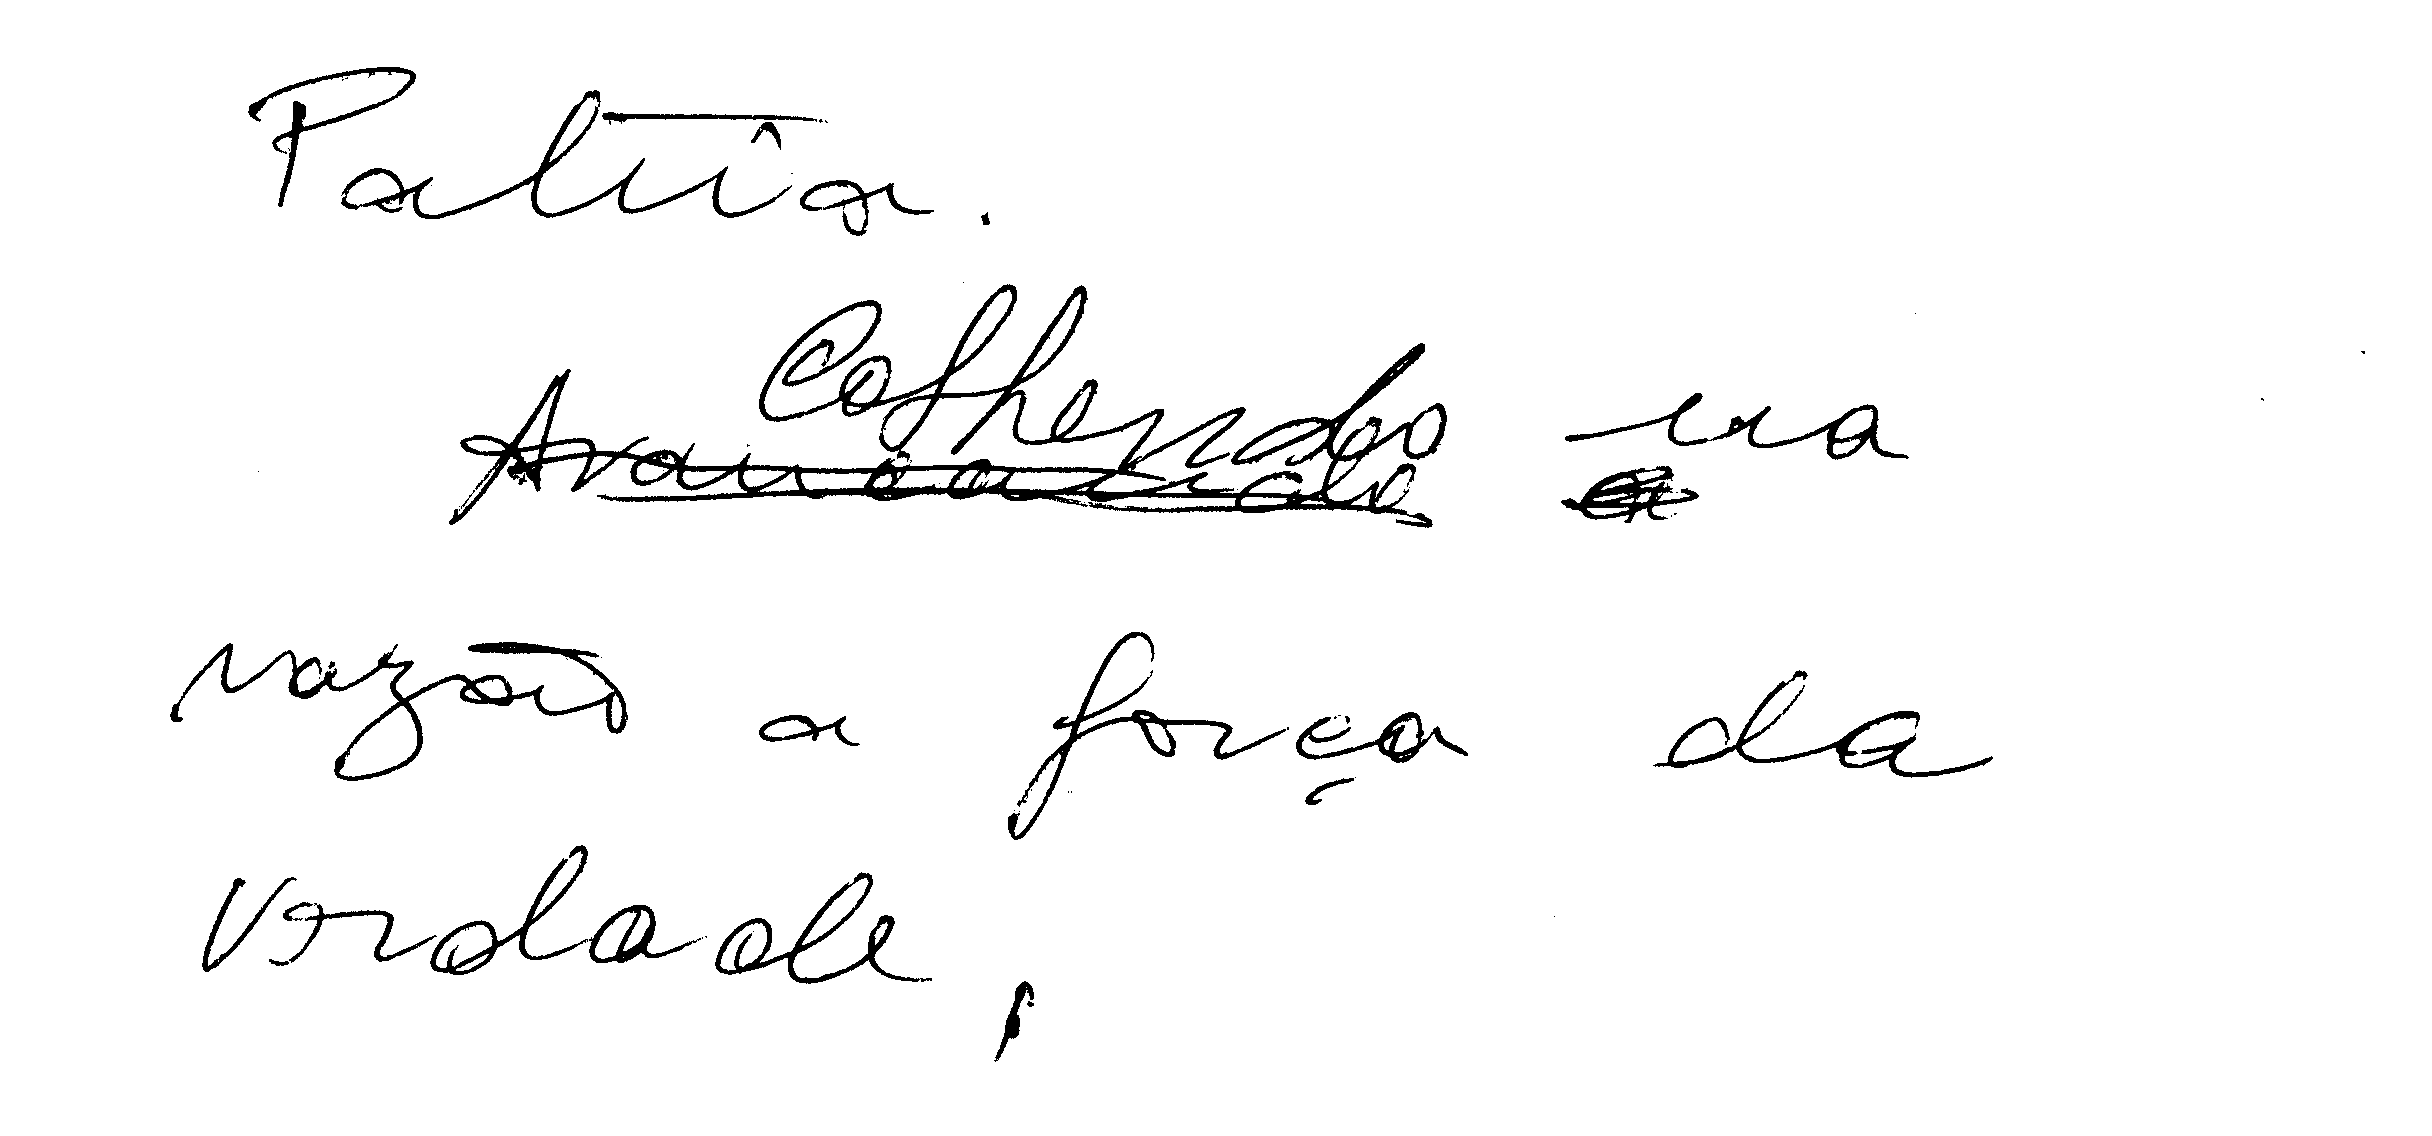 Patria.
Colhendo na
razão a força da
Verdade,